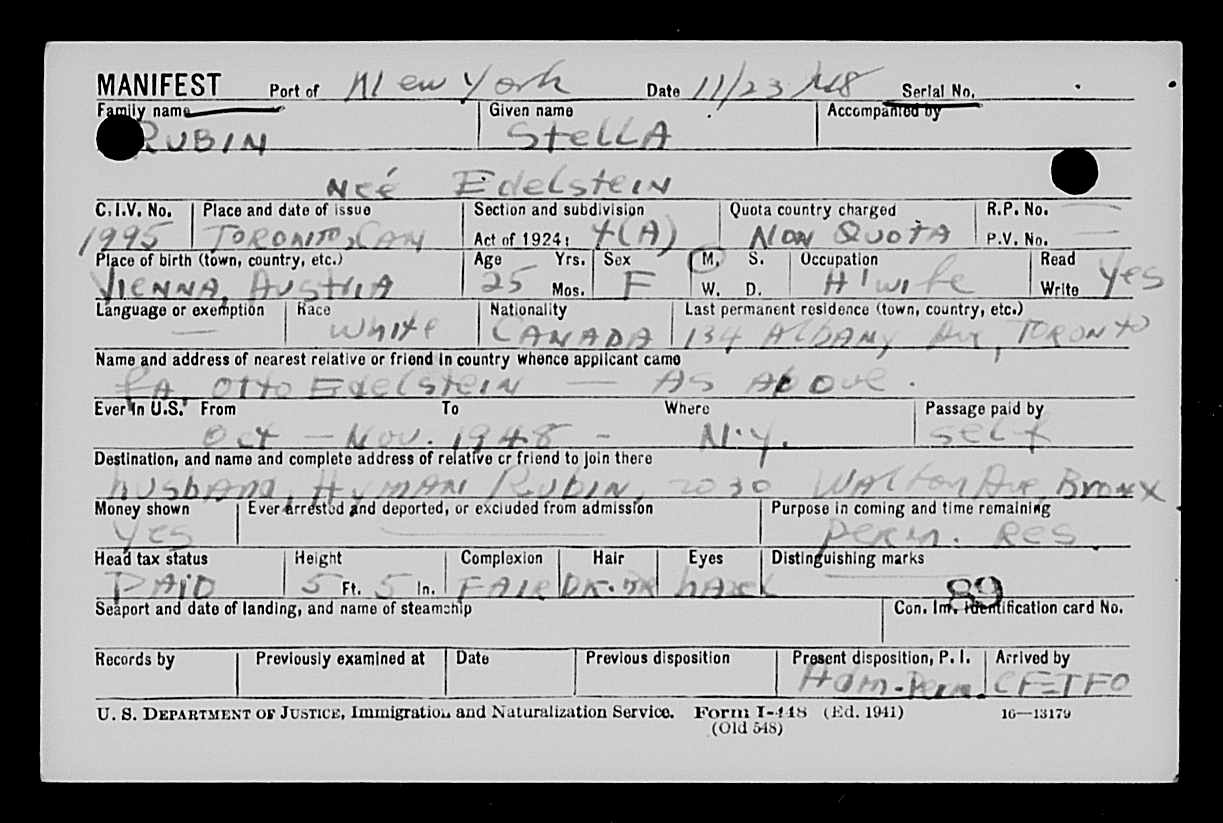 MANIFEST Port of New York Date 11/23/48 Serial No.
Family name Given name Accompanied by
RUBIN STELLA
Neé Edelstein
C.I.V. No. Place and date of issue Section and subdivision Quota country charged R.P. No. —
1995 TORONTO, CAN Act of 1924: 4(A) NON QUOTA P.V. No. —
Place of birth (town, country, etc.) Age Yrs. Sex M. S. Occupation Read
VIENNA, AUSTRIA 25 Mos. F W. D. H'wife Write Yes
Language or exemption Race Nationality Last permanent residence (town, country, etc.)
— White CANADA 134 Albany Ave, TORONTO
Name and address of nearest relative or friend in country whence applicant came
FA. Otto Edelstein — AS Above.
Ever in U.S. From To Where Passage paid by
Oct — Nov. 1948 - N.Y. Self
Destination, and name and complete address of relative or friend to join there
husband, Hyman Rubin, 2030 Walton Ave, Bronx
Money shown Ever arrested and deported, or excluded from admission Purpose in coming and time remaining
Yes — Perm. Res.
Head tax status Height Complexion Hair Eyes Distinguishing marks
PAID 5 Ft. 5 In. FAIR DK. BR hazel —
89
Seaport and date of landing, and name of steamship Con. Im. Identification card No.
Records by Previously examined at Date Previous disposition Present disposition, P. I. Arrived by
Adm.-Perm. CF-TFO
U. S. DEPARTMENT OF JUSTICE, Immigration and Naturalization Service. Form I-448 (Ed. 1941) 16—13179
(Old 548)